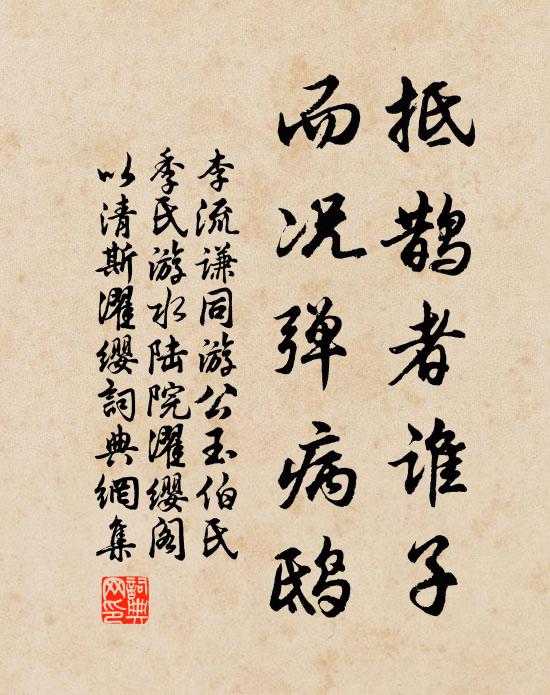 抵鹊者谁子
而况弹病鸱
李流谦同游公玉伯氏
季氏游水陆院濯缨阁
以清斯濯缨詞典網集
詞典網印